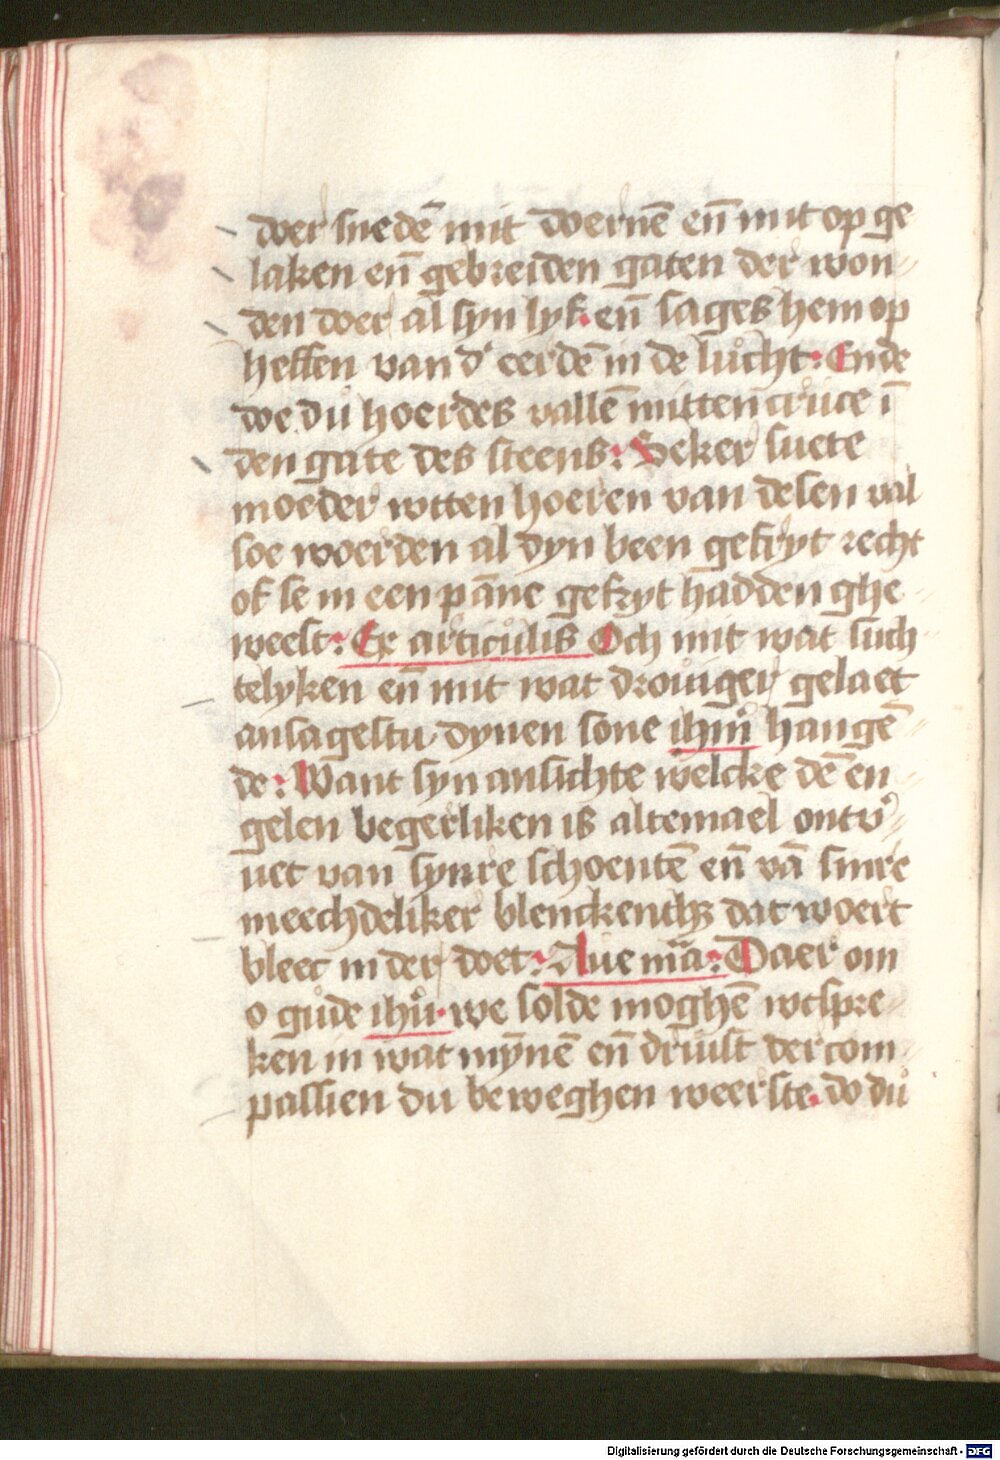 doer sneden̄ mit doernē en̄ mit op ge
laken en̄ gebreiden gaten der won
den doer al syn lyf. en̄ sages hem op
heffen van d' eerdē in de lůcht: Ende
doe du hoerdes vallē mitten crůce ī
den gate des steens: Seker suete
moeder wtten hoeren van desen val
soe woerden al dyn been gekryt recht
of se in een pāne gekryt hadden ghe
weest: Ex articůlis Och mit wat such
telyken en̄ mit wat drouiger gelaet
ansagestu dynen sone ihm̄ hangē
de: Want syn ansichte welcke dē en
gelen begerliken is altemael ontv'
uet van synre schoentē en̄ vā sinre
meechdeliker blenckenth3 dat woert
bleec in der doet: Aue mīa: Daer om
o gůde ihū. we solde moghē wtspre
ken in wat mȳnē en̄ druůst der com
passien du beweghen weerste. do dů
Digitalisierung gefördert durch die Deutsche Forschungsgemeinschaft - DFG